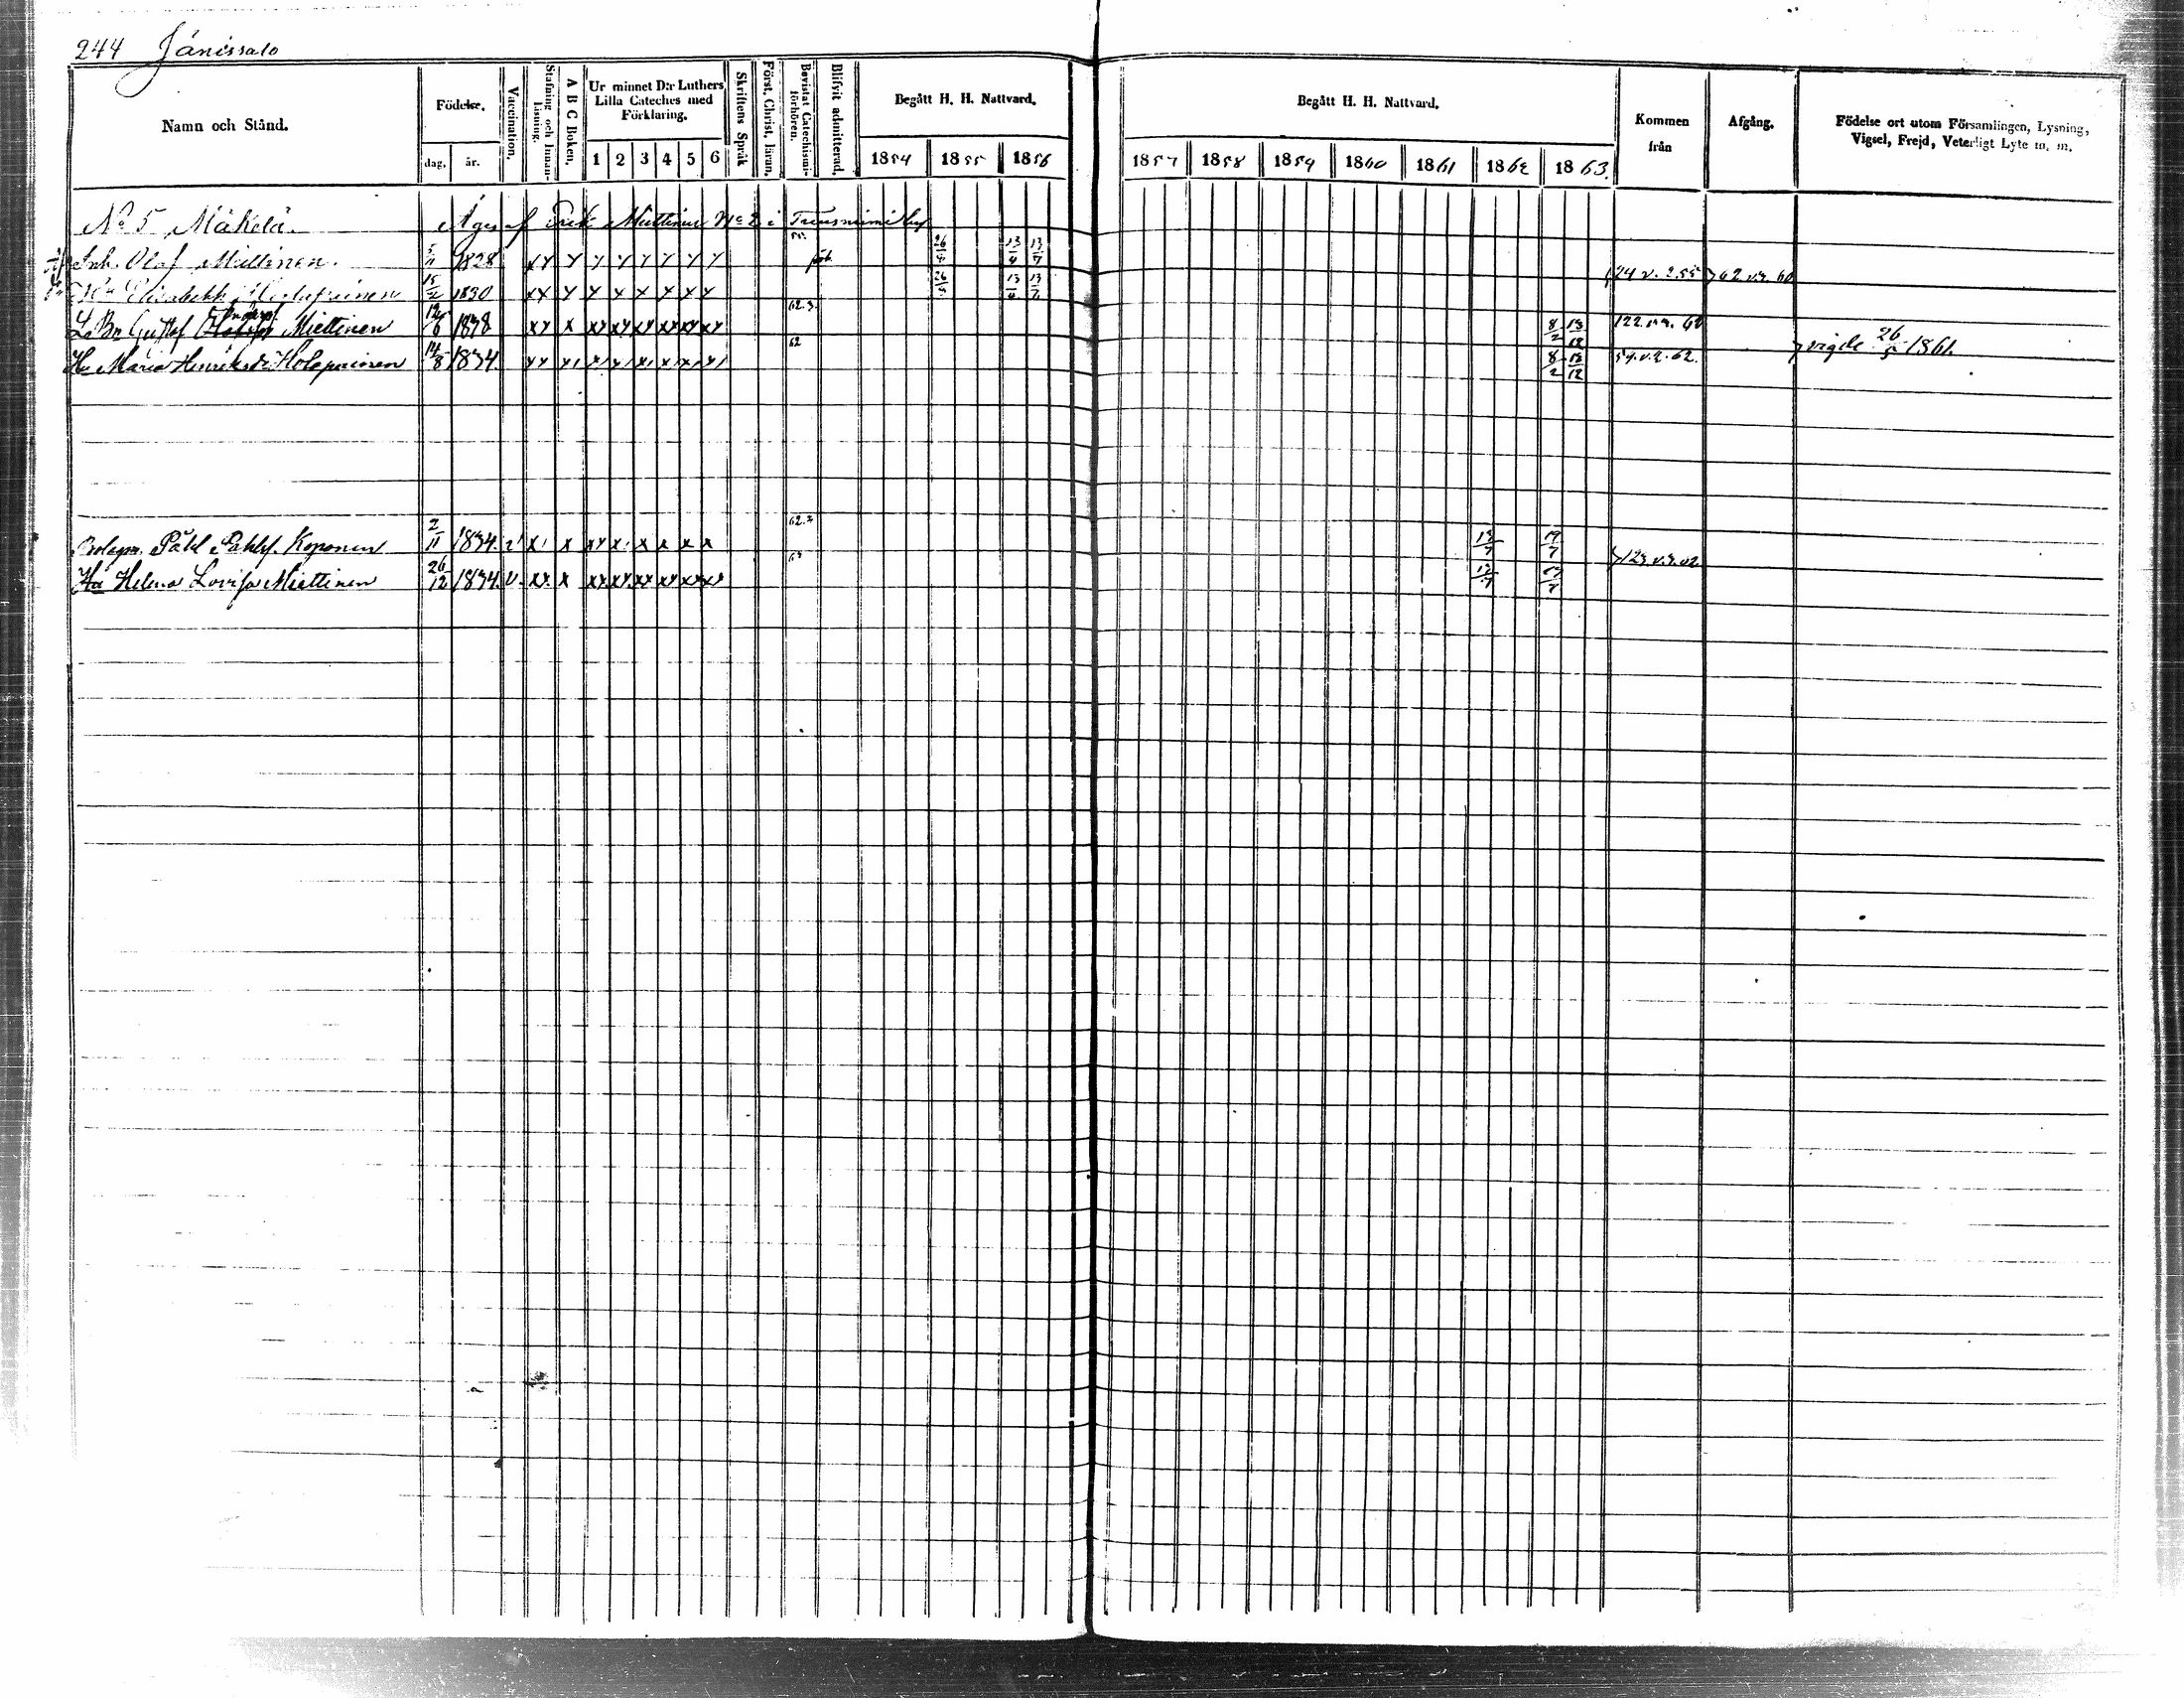 244 Jänissalo
Namn och Stånd.
Födelse.
dag. år.
Vaccination.
Stafning och Innan-läsning.
A B C Boken.
Ur minnet D:r Luthers Lilla Cateches med Förklaring.
1 2 3 4 5 6
Skriftens Språk
Först. Christ. läran.
Bevistat Catechismi-förhören.
Blifvit admitterad.
Begått H. H. Nattvard.
1854 1855 1856
Begått H. H. Nattvard.
1857 1858 1859 1860 1861 1862 1863.
Kommen från
Afgång.
Födelse ort utom Församlingen, Lysning, Vigsel, Frejd, Veterligt Lyte m. m.
No 5 Mäkelä. Äges af Erik Miettinen No 2 i
Inh. Olaf Miettinen. 5/11 1828 xy y y y y y y y 26/8 13/4 13/7 124 v. 2.55 62 v.3. 60
Hu Elisabeth 15/2 1830 xx y x x x x x x 26/8 13/4 13/7
L. Br Gustaf Anderss Miettinen 12/6 1838 xy x xy xy xy xy xy xy 62.3. 8/2 13/12 122. v.3. 60
Hu Maria Henriksdr Holopainen 14/8 1834. 62 8/2 13/12 54. v.2. 62. vigde 26/5 1861.
Bolagm. Påhl Påhlsf. Koponen 2/11 1834. v x x xy x x x x x 62.3 13/7 19/7 123 v.3.62
Hu Helena Lovisa Miettinen 26/12 1834. v. xy. x xy xy xy xy xy xy 63 13/7 19/7